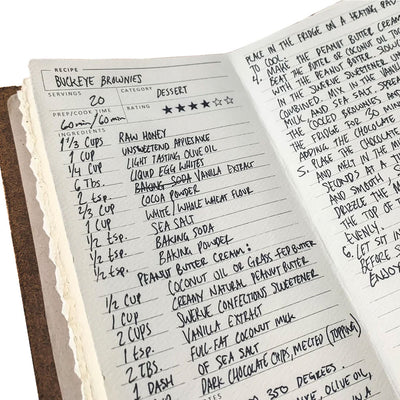 RECIPE
BUCKEYE BROWNIES
SERVINGS 20 CATEGORY DESSERT
PREP/COOK TIME 60min/60min RATING ★★★★☆☆
INGREDIENTS
1 1/3 CUPS RAW HONEY
1 CUP UNSWEETEND APPLESAUCE
1/4 CUP LIGHT TASTING OLIVE OIL
6 TBS. LIQUID EGG WHITES
2 tsp. BAKING SODA VANILLA EXTRACT
2/3 CUP COCOA POWDER
1 CUP WHITE/WHOLE WHEAT FLOUR
1/2 tsp. SEA SALT
1/2 tsp. BAKING SODA
1/2 tsp. BAKING POWDER
PEANUT BUTTER CREAM:
1/2 CUP COCONUT OIL OR GRASS FED BUTTER
1 CUP CREAMY NATURAL PEANUT BUTTER
2 CUPS SWERVE CONFECTIONS SWEETENER
1 tsp. VANILLA EXTRACT
2 TBS. FULL-FAT COCONUT MILK
1 DASH OF SEA SALT
DARK CHOCOLATE CHIPS, MELTED (TOPPING)
350 DEGREES.
OLIVE OIL,
PLACE IN THE FRIDGE ON A HEATING
TO COOL.
4. MAKE THE PEANUT BUTTER CREAM
BUTTER OR COCONUT OIL
PEANUT BUTTER.
IN THE SWERVE SWEETENER
COMBINED. MIX IN THE VANILLA
MILK AND SEA SALT. SPREAD
THE COOLED BROWNIES AND
THE FRIDGE FOR 30
ADDING THE CHOCOLATE
5. PLACE THE CHOCOLATE
AND MELT IN THE
SECONDS AT A
AND SMOOTH.
DRIZZLE THE
THE TOP OF
EVENLY.
6. LET SIT IN
BEFORE
ENJOY